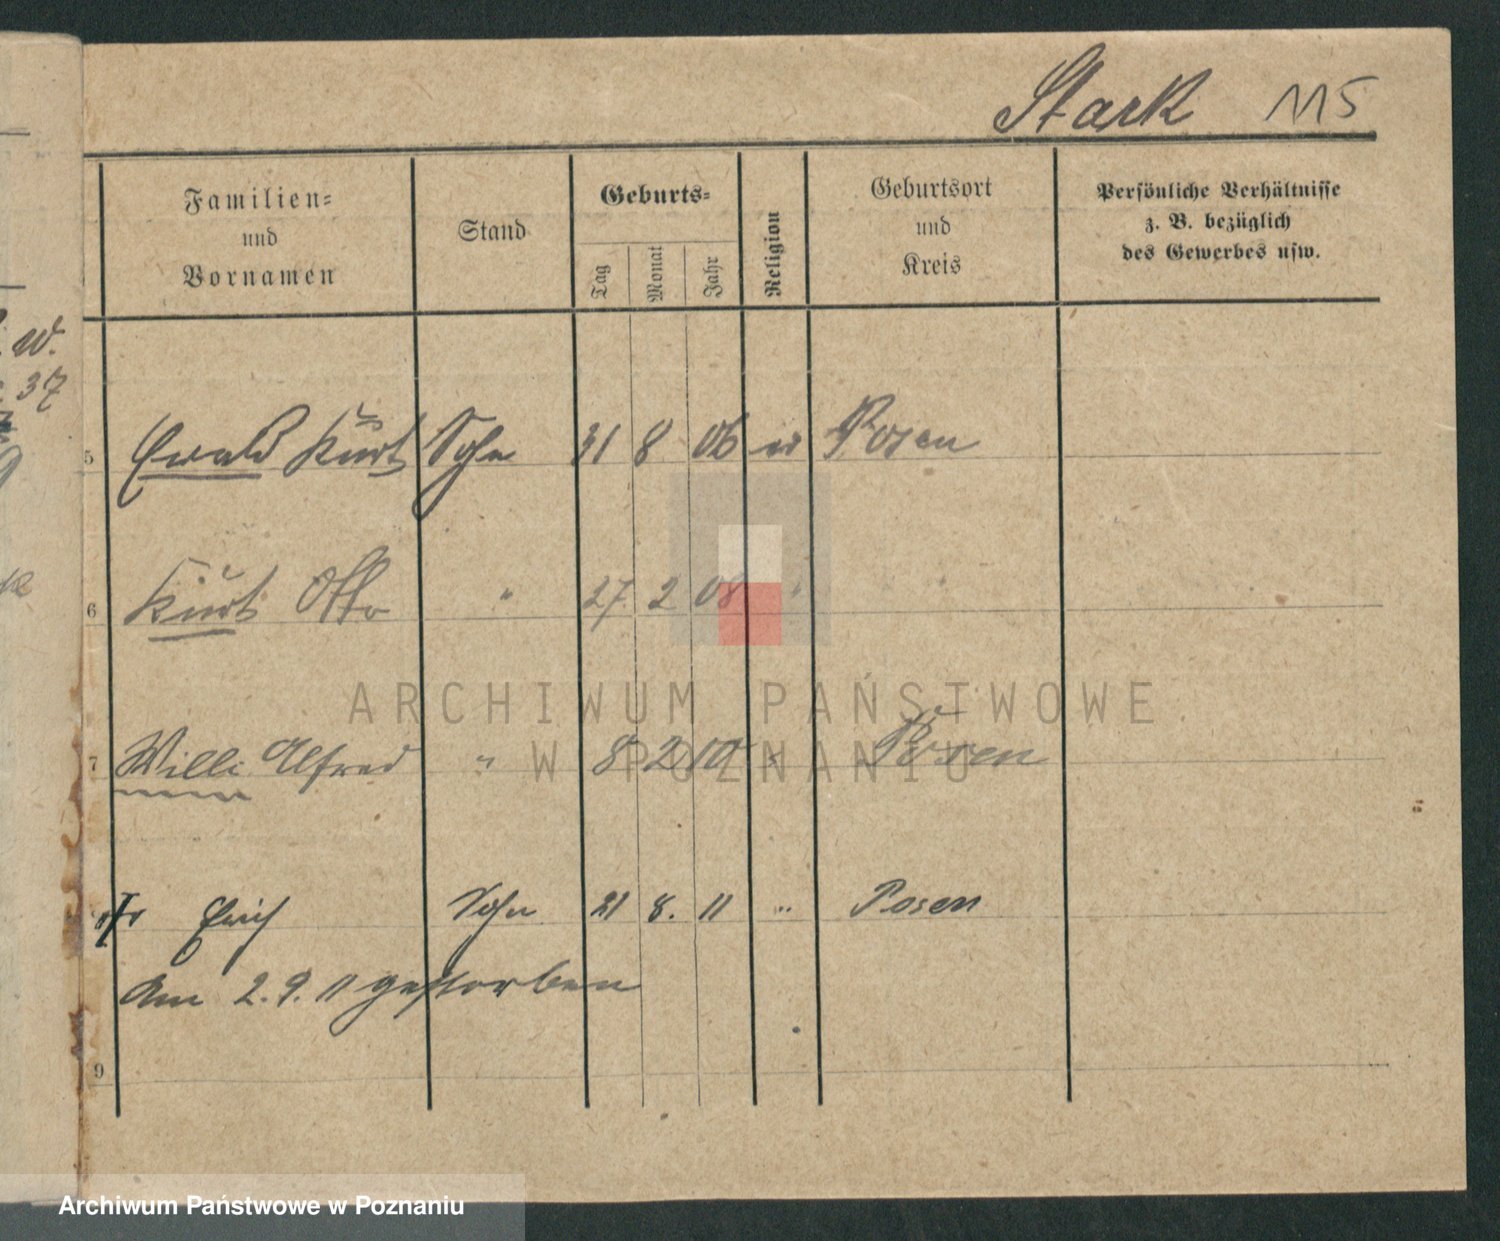 Stark 115
Familien=
und
Vornamen
Stand
Geburts=
Tag
Monat
Jahr
Religion
Geburtsort
und
Kreis
Persönliche Verhältnisse
z. B. bezüglich
des Gewerbes usw.
w.
37
5 Ewald Kurt Sohn 31 8 06 Posen
6 Kurt Otto " 27 2 08 "
ARCHIWUM PAŃSTWOWE
W POZNANIU
7 Willi Alfred " 8 2 10 " Posen
Erich Sohn 21 8. 11 " Posen
Am 2. 9. 11 gestorben
9
Archiwum Państwowe w Poznaniu